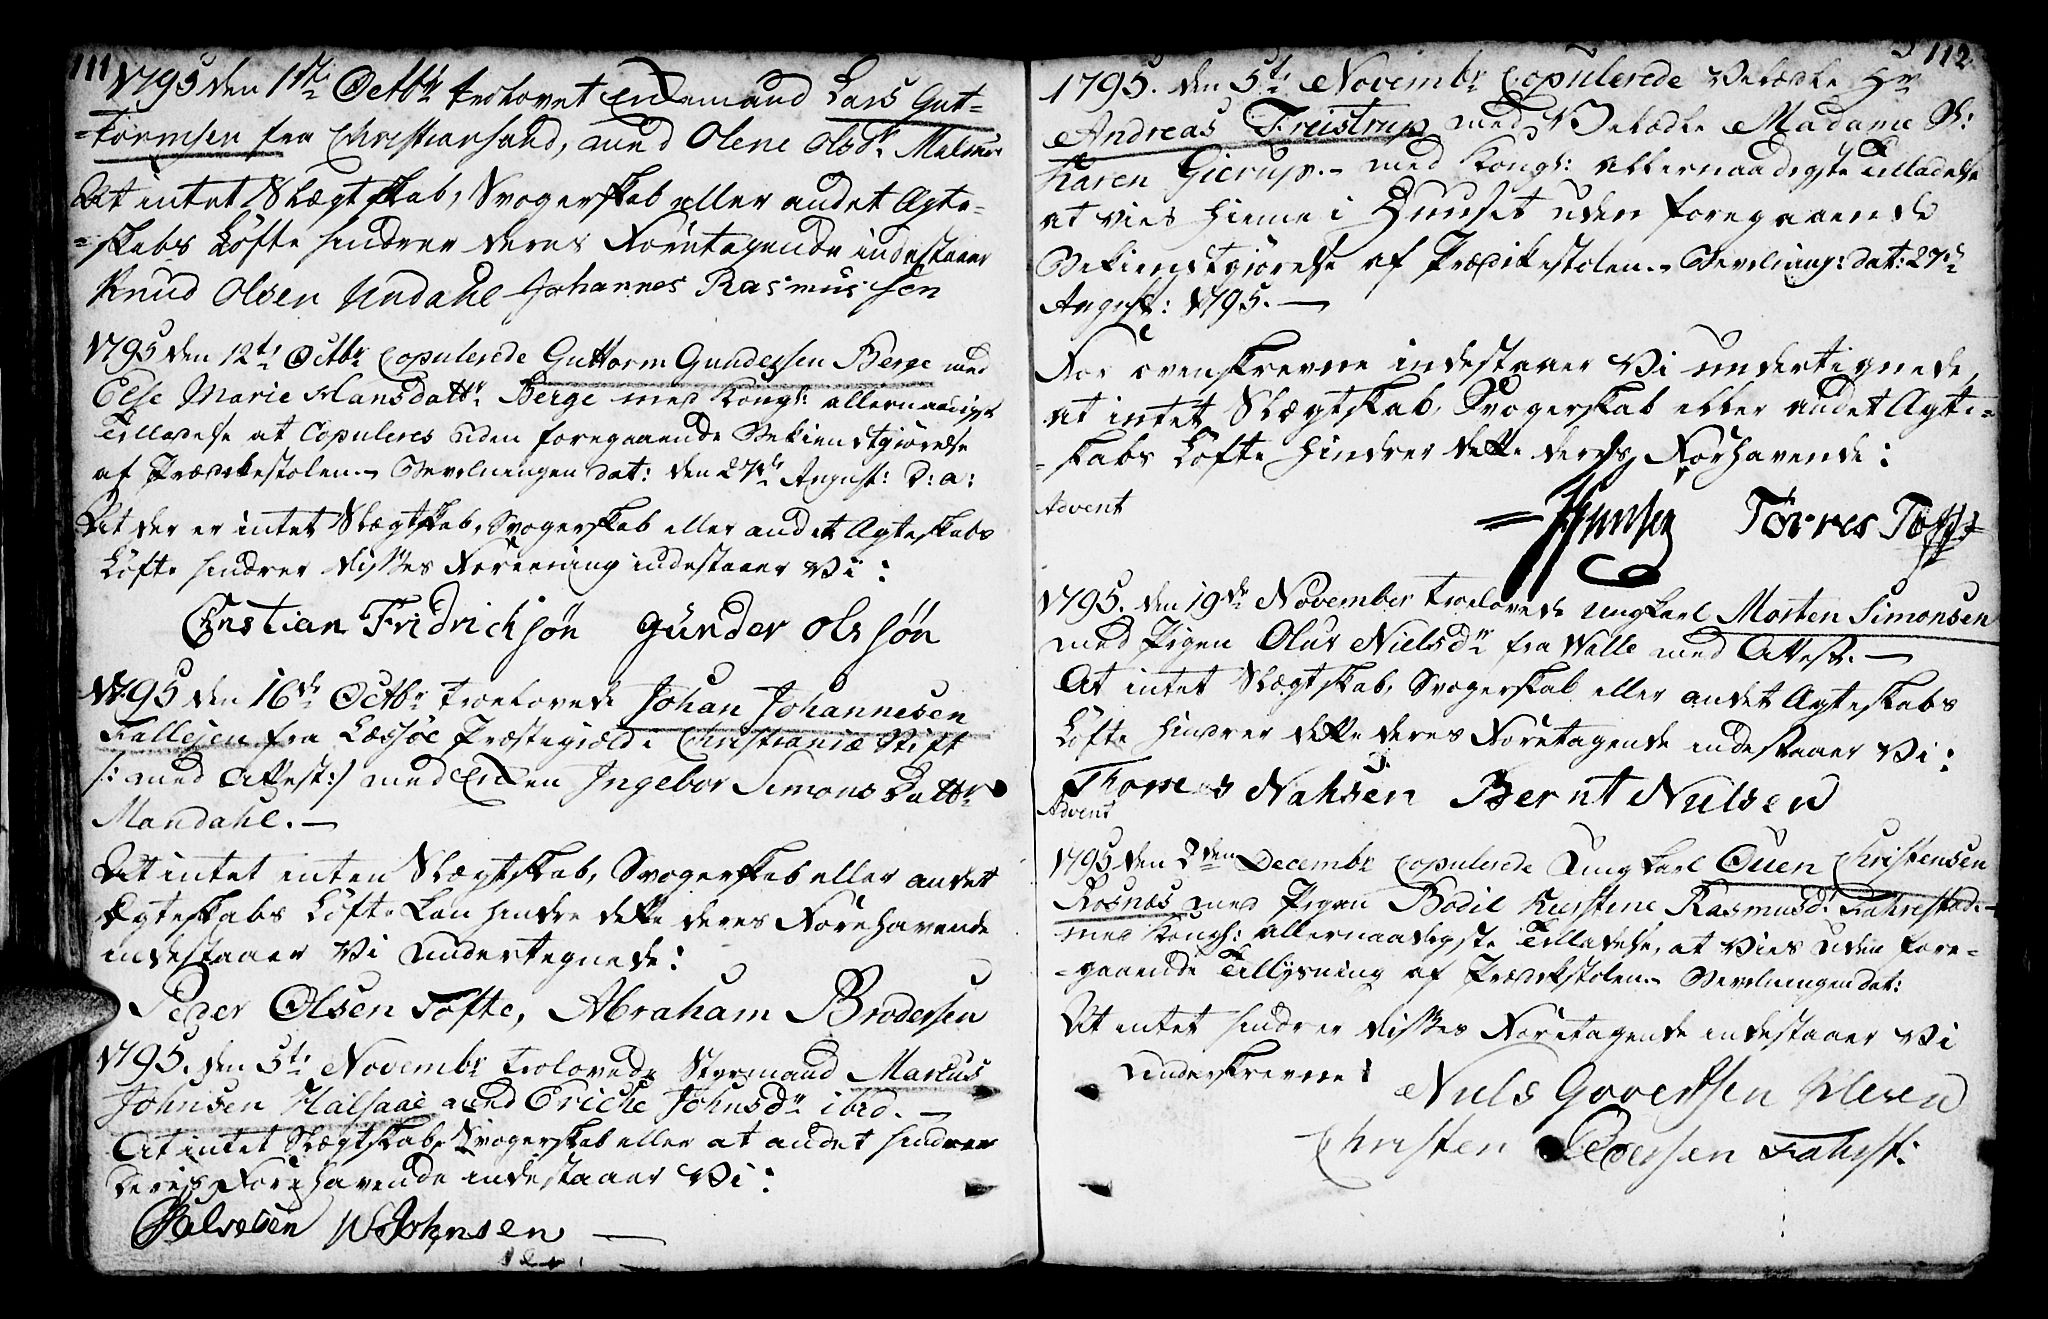 111
1795 den 1ste Octbr trolovet Enkemand Lars Gut-
=tormsen fra Christiansand, med Olene Olsdr Malmøe
At intet Slægtskab, Svogerskab eller andet Ægte-
=skabs Løfte hindrer deres Foretagende indestaaer
Knud Olsen Undahl Johannes Rasmussen
1795 den 12te Octbr Copulerede Guttorm Gundersen Berge med
Else Marie Hansdattr Berge med Kongl: allernaadigst
Tilladelse at Copuleres uden foregaaende Bekiendtgiørelse
af Prædikestolen. Bevilningen dat: den 27de August: d: a:
At der er intet Slægtskab, Svogerskab eller andet Ægteskabs
Løfte hindrer disses Foreening indestaaer Vi:
Christian Fridrichsøn Günder Olssøn
1795 den 16de Octbr Troelovede Johan Johannesen
Fallesen fra Læssøe Præstegield i Christianiæ Stift
/: med Attest:/ med Enken Ingebor Simons Dattr
Mandahl.
At intet inten Slægtskab, Svogerskab eller andet
Ægteskabs Løfte kan hindre dette deres Forehavende
indestaaer Vi undertegnede:
Peder Olsen Tofte, Abraham Brodersen
1795. den 5te Novembr trolovede Styrmand Marcus
Johnsen Halsaae med Eriche Johnsdr ibid.
At intet Slægtskab, Svogerskab eller at andet hindrer
deres Forehavende indestaaer Vi:
Salvesen W Johnsen
112
1795. den 5te Novembr Copulerede Velædle Hr
Andreas Freistrup med Velædle Madame Sl:
Karen Gierup. med Kongl: allernaadigste Tilladelse
at vies hieme i Huuset uden foregaaende
Bekiendtgiørelse af Prædikestolen. Bevilning: dat: 27de
August: 1795.
For ovenskrevne indestaaer Vi undertegnede,
at intet Slægtskab, Svogerskab eller andet Ægte-
=skabs Løfte hindrer dette deres Forhavende:
Advent
Tørres
1795. den 19de November troelovede ungkarl Morten Simonsen
med Pigen Olur Nielsdr fra Walle med Attest.
At intet Slægtskab, Svogerskab eller andet Ægteskabs
Løfte hindrer dette deres Foretagende indestaaer Vi:
Thomes Nahsen Bernt Nielsen
Advent
1795 den 2den Decembr Copulerede Ungkarl Ouen Christensen
Rosnæs med Pigen Bodil Kirstine Rasmusdr Fahrestad.
med Kongl: allernaadigste Tilladelse, at Vies uden fore-
=gaaende Tillysning af Prædikestolen. Bevilningen dat:
At intet hindrer disses Foretagende indestaaer Vi
Underskrevne:
Niels Goverdsen
Christen Pedersen Fahrst: